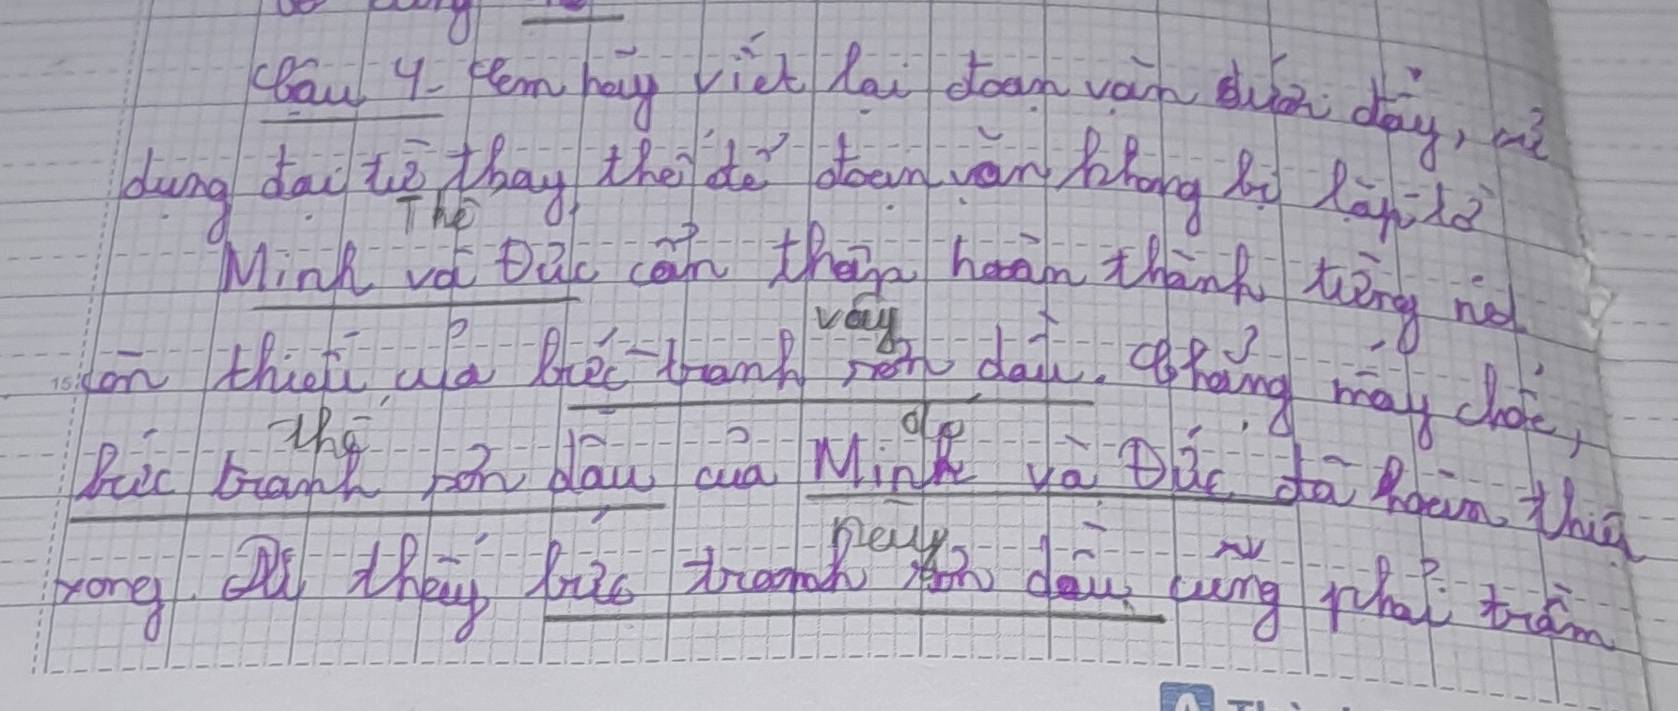 Câu 4 Em hãy viết lại đoạn văn dưới đây, sử
dụng đại từ thay thế để đoạn văn không bị lặp từ
Thế
Minh và Đức cẩn thận hoàn thành từng nét
vậy
còn thiếu của bức tranh sơn dầu. Chẳng mấy chốc,
thế
bức tranh sơn dầu của Minh và Đức đã hoàn thiện
này
xong. Ai thấy bức tranh sơn dầu cũng phải trầm